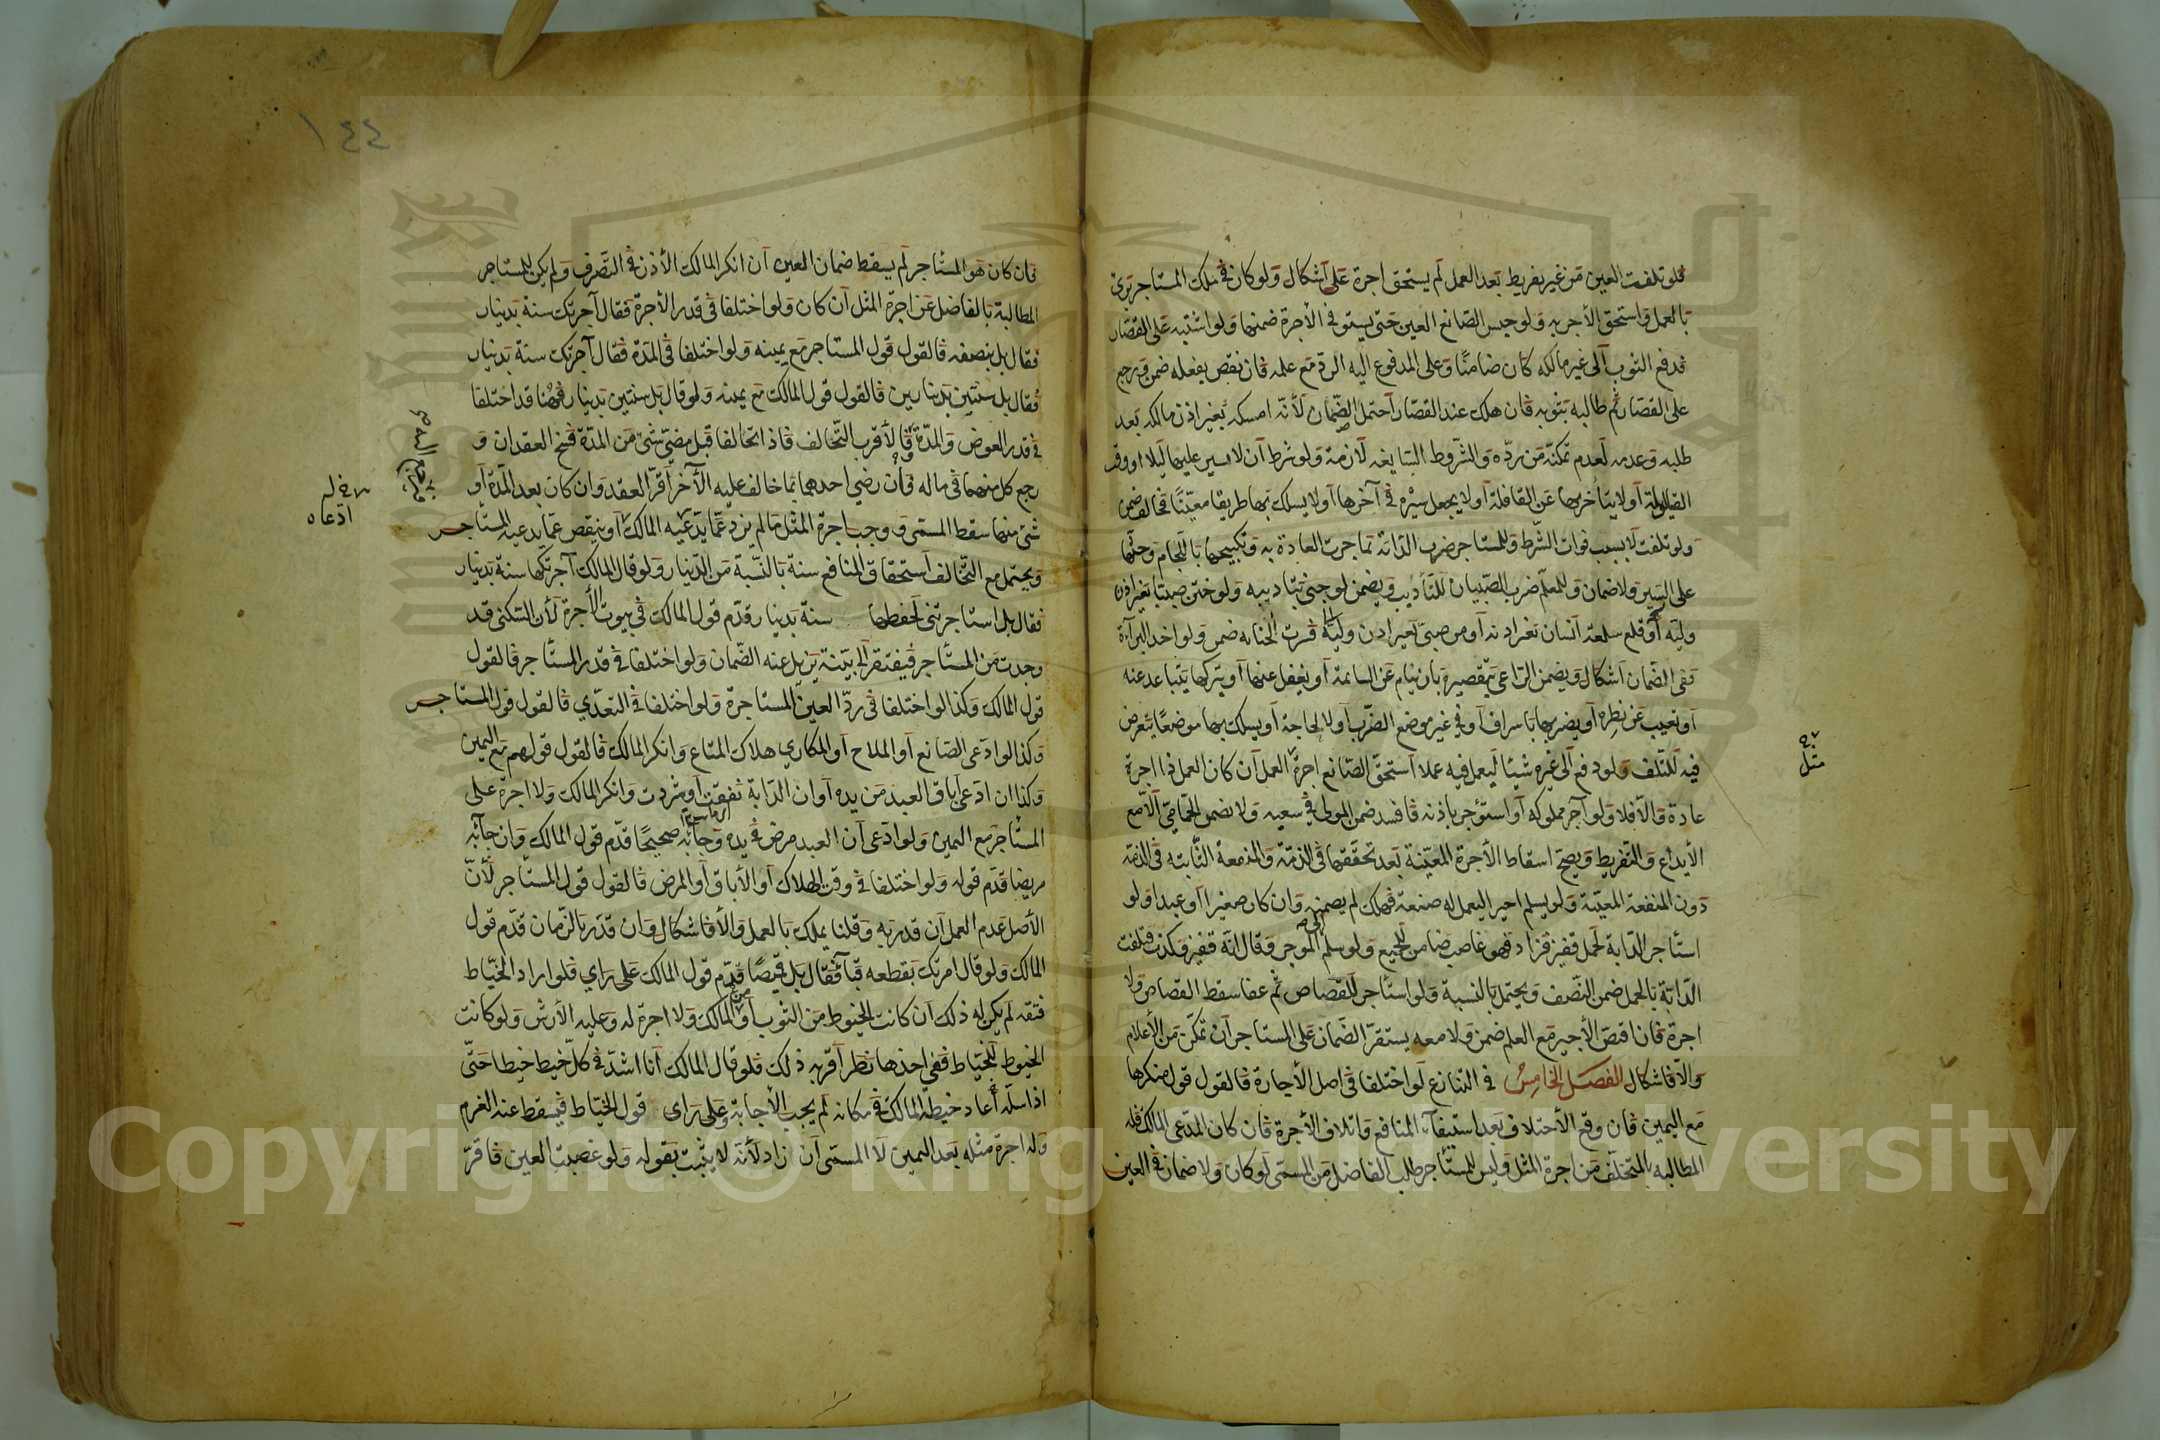 فلو تلفت العين من غير تفريط بعد العمل لم يستحق اجرة على اشكال ولو كان في ملك المستاجر برئ
بالعمل واستحق الأجر به ولو حبس الصانع العين حتى يستوفي الأجرة ضمنها ولو اشتبه على القصار
فدفع الثوب الى غير مالكه كان ضامنًا وعلى المدفوع اليه الرد مع علمه فان نقص بفعله ضمن ويرجع
على القصار ثم طالبه بثوبه فان هلك عند القصار احتمل الضمان لأنه امسكه بغير اذن مالكه بعد
طلبه وعدمه لعدم تمكنه من رده والشروط السايغه لازمة ولو شرط ان لا يسير عليها ليلا او وقت
القيلولة او لا يتأخر بها عن القافلة او لا يجعل سيره في آخرها او لا يسلك بها طريقا معينًا فخالف ضمن
ولو تلفت لا بسبب فوات الشرط وللمستاجر ضرب الدابة بما جرت العادة به وتكبيحها باللجام وحثها
على السير ولا ضمان وللمعلم ضرب الصبيان للتأديب ويضمن لو جنى بتاديبه ولو ختن صبيا بغير اذن
وليه او قلع سلعة انسان بغير اذنه او من صبي بغير اذن وليه فسرت الجناية ضمن ولو اخذ البراءة
ففي الضمان اشكال ويضمن الراعي بتقصيره بان ينام عن السائمة او يغفل عنها او يتركها يتباعد عنه
او تغيب عن نظره او يضربها باسراف او في غير موضع الضرب او لا لحاجة او يسلك بها موضعًا يتعرض
فيه للتلف ولو دفع الى غيره شيئا ليعمل فيه عملا استحق الصانع اجرة العمل ان كان العمل ذا اجرة
عادة والا فلا ولو آجر مملوكه او استؤجر باذنه فافسد ضمن المولى في سعيه ولا يضمن الحمامي الا مع
الأيداع والتفريط ويصح اسقاط الأجرة المعينة بعد تحققها في الذمة والمنفعة الثابته في الذمة
دون المنفعة المعينة ولو تسلم اجيرا ليعمل له صنعة فهلك لم يضمنه وان كان صغيرا او عبدا ولو
استأجر الدابة لحمل قفيز فزاد فهو غاصب ضامن للجميع ولو سلم الى الموجر وقال انه قفيز وكذب فتلفت
الدابة بالحمل ضمن النصف ويحتمل بالنسبة ولو استأجر للقصاص ثم عفا سقط القصاص ولا
اجرة فان اقتص الأجير مع العلم ضمن ولا معه يستقر الضمان على المستاجر ان تمكن من الأعلام
والا فاشكال الفصل الخامس في التنازع لو اختلفا في اصل الأجارة فالقول قول منكرها
مع اليمين فان وقع الأختلاف بعد استيفاء المنافع واتلاف الأجرة فان كان المدعي المالك فله
المطالبه بالمتخلف من اجرة المثل وليس للمستأجر طلب الفاضل من المسمى لو كان ولا ضمان في العين
مثل
١٤٤
فان كان هو المستأجر لم يسقط ضمان العين ان انكر المالك الأذن في التصرف ولم يكن للمستاجر
المطالبة بالفاضل عن اجرة المثل ان كان ولو اختلفا في قدر الأجرة فقال آجرتك سنة بدينار
فقال بل بنصفه فالقول قول المستاجر مع يمينه ولو اختلفا في المدة فقال آجرتك سنة بدينار
فقال بل سنتين بدينارين فالقول قول المالك مع يمينه ولو قال بل سنتين بدينار فهنا قد اختلفا
في قدر العوض والمدة فالأقرب التحالف فاذا تحالفا قبل مضي شئ من المدة فسخ العقدان و
رجع كل منهما في ماله فان رضي احدهما بما حالف عليه الآخر اقر العقد وان كان بعد المدة او
شئ منها سقط المسمى ووجب اجرة المثل ما لم يزد عما يدعيه المالك او ينقص عما يدعيه المستأجر
ويحتمل مع التحالف استحقاق المنافع سنة بالنسبة من الدينار ولو قال المالك آجرتكها سنة بدينار
فقال بل استاجرتني لحفظها سنة بدينار قدم قول المالك في ثبوت الأجرة لأن السكنى قد
وجدت من المستأجر فيفتقر الى بينة يزيل عنه الضمان ولو اختلفا في قدر المستأجر فالقول
قول المالك وكذا لو اختلفا في رد العين المستاجرة ولو اختلفا في التعدي فالقول قول المستاجر
وكذا لو ادعى الصانع او الملاح او المكاري هلاك المتاع وانكر المالك فالقول قولهم مع اليمين
وكذا ان ادعى اباق العبد من يده او ان الدابة نفقت او شردت وانكر المالك ولا اجرة على
المستأجر مع اليمين ولو ادعى ان العبد مرض في يده وجاء به صحيحًا قدم قول المالك وان جاء به
مريضا قدم قوله ولو اختلفا في وقت الهلاك او الأباق او المرض فالقول قول المستأجر لأن
الأصل عدم العمل ان قدر به وقلنا يملك بالعمل والا فاشكال وان قدر بالزمان قدم قول
المالك ولو قال امرتك بقطعه قبآءً فقال بل قميصًا قدم قول المالك على راي فلو اراد الخياط
فتقه لم يكن له ذلك ان كانت الخيوط من الثوب او من المالك ولا اجرة له وعليه الأرش ولو كانت
الخيوط للخياط ففي اخذها نظر اقربه ذلك فلو قال المالك انا اشد في كل خيط خيطا حتى
اذا سله اعاد خيطه المالك في مكانه لم يجب الأجابة وعلى راى قول الخياط فيسقط عنه الغرم
وله اجرة مثله بعد اليمين لا المسمى ان زاد لأنه لا يثبت بقوله ولو غصبت العين فاقر
ادعاه
Copyright © King Saud University